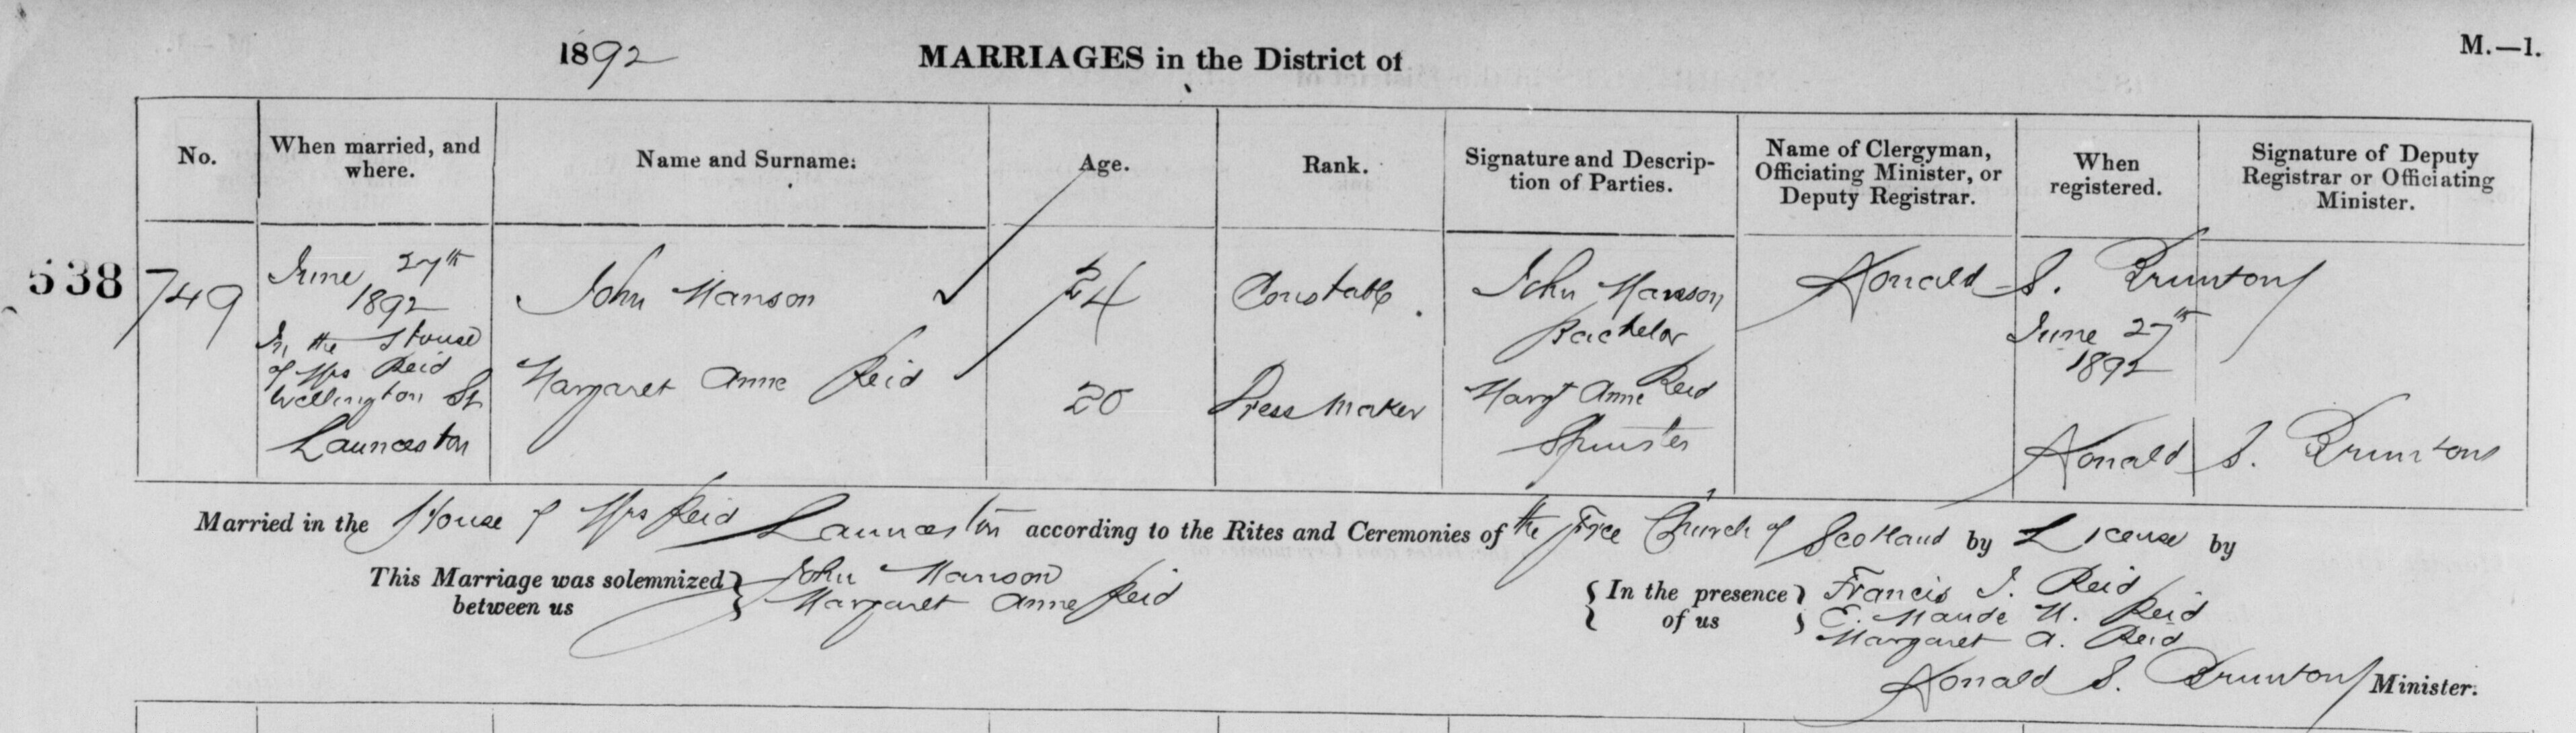 1892 MARRIAGES in the District of M.—1.
No.
When married, and where.
Name and Surname.
Age.
Rank.
Signature and Description of Parties.
Name of Clergyman, Officiating Minister, or Deputy Registrar.
When registered.
Signature of Deputy Registrar or Officiating Minister.
538
749
June 27th
1892
In the House
of Mrs Reid
Wellington St
Launceston
John Manson
Margaret Anne Reid
24
20
Constable
Dressmaker
John Manson
Bachelor
Margt Anne Reid
Spinster
Ronald S. Brunton
June 27th
1892
Ronald S. Brunton
Married in the House of Mrs Reid Launceston according to the Rites and Ceremonies of the Free Church of Scotland by License by
This Marriage was solemnized between us
John Manson
Margaret Anne Reid
In the presence of us
Francis J. Reid
E. Maude M. Reid
Margaret A. Reid
Ronald S. Brunton Minister.